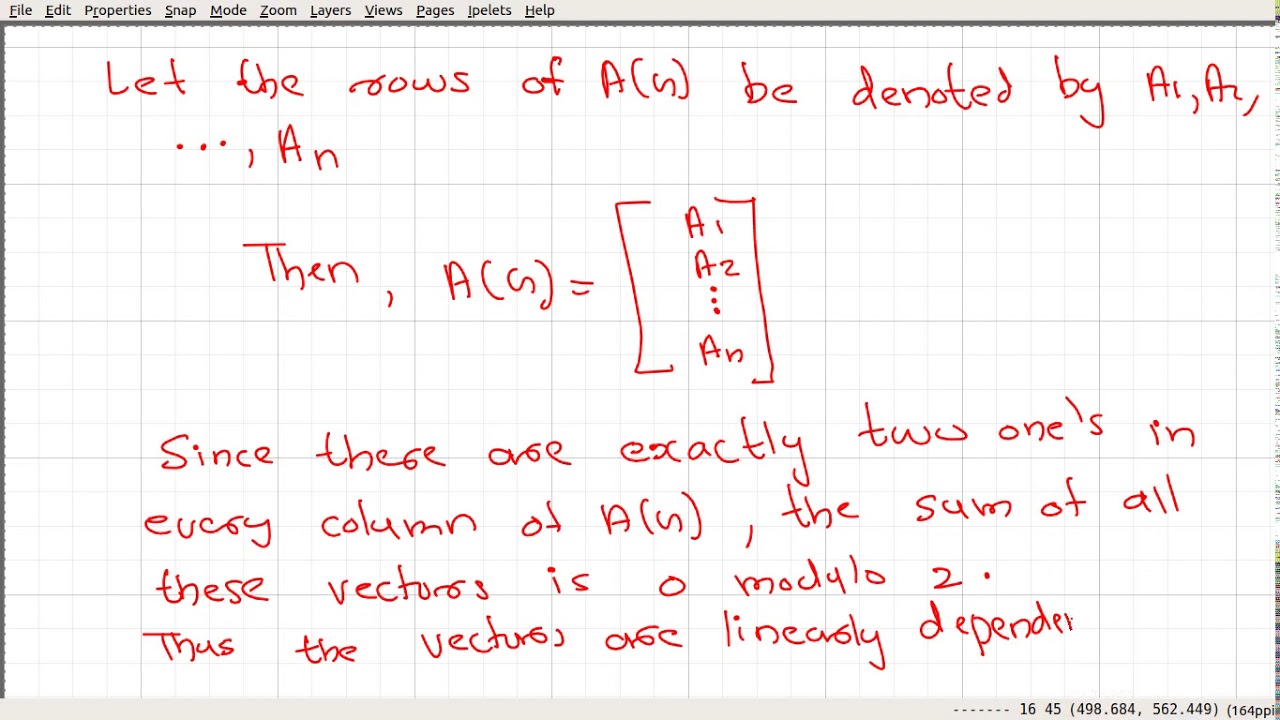 File Edit Properties Snap Mode Zoom Layers Views Pages Ipelets Help
Let the rows of A(G) be denoted by A1, A2,
..., An
Then, A(G) = [ A1
A2
⋮
An ]
Since there are exactly two one's in
every column of A(G), the sum of all
these vectors is 0 modulo 2.
Thus the vectors are linearly dependen
------- 16 45 (498.684, 562.449) (164ppi